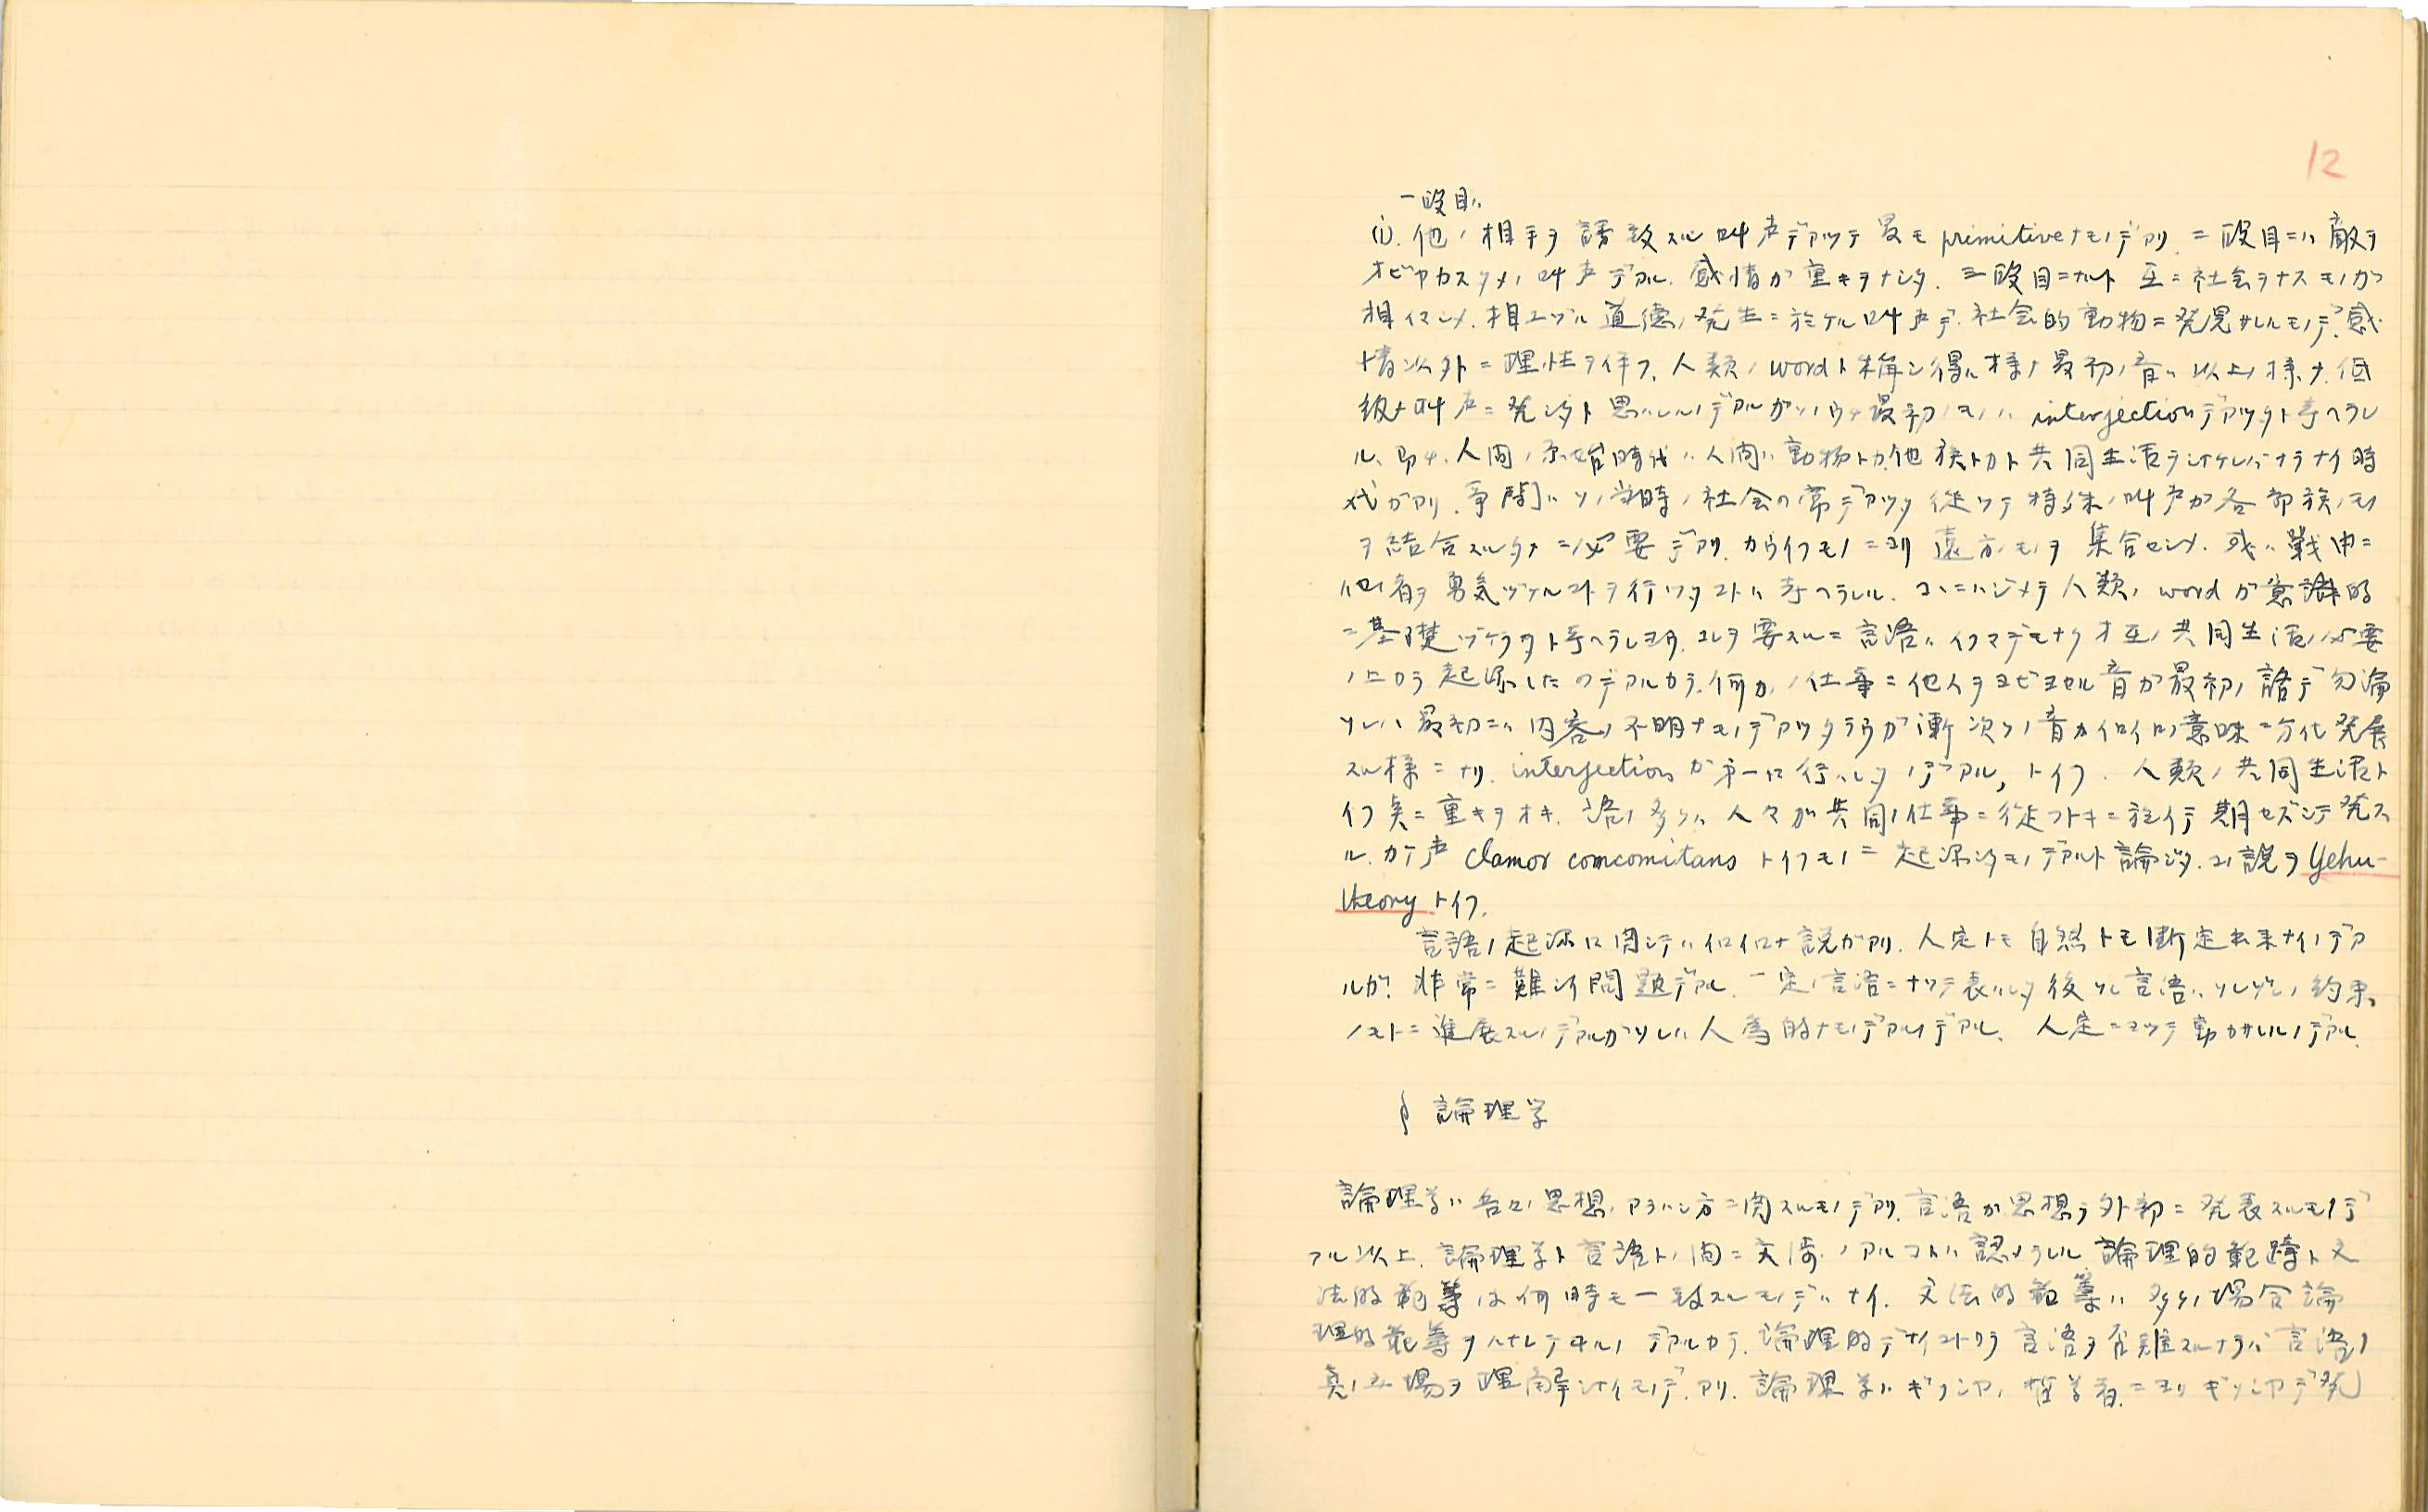 12
一段目ハ
(1). 他ノ相手ヲ誘致スル叫声デアツテ最モprimitiveナモノデアリ. 二段目ニハ敵ヲ
オビヤカスタメノ叫声デアル. 感情ガ重キヲナシタ. 三段目ニナルト互ニ社会ヲナスモノガ
相イマシメ. 相ユヅル道徳ノ発生ニ於ケル叫声デ. 社会的動物ニ発見サレルモノデ. 感
情以外ニ理性ヲ伴フ. 人類ノwordト称シ得ル様ナ最初ノ音ハ以上ノ様ナ. 低
級ナ叫声ニ発シタト思ハレルノデアルガソノウチ最初ノモノハinterjectionデアツタト考ヘラレ
ル. 即チ. 人間ノ原始時代ハ人間ハ動物トカ他族トカト共同生活ヲシナケレバナラナイ時
代ガアリ. 争闘ハソノ当時ノ社会の常デアツタ従ツテ特殊ノ叫声ガ各部族ノモノ
ヲ結合スルタメニ必要デアリ. カウイフモノニヨリ遠方ノモノヲ集合セシメ. 或ハ戦中ニ
他ノ者ヲ勇気ヅケルコトヲ行ツタコトハ考ヘラレル. コヽニハジメテ人類ノwordガ意識的
ニ基礎ヅケラレタト考ヘラレヨウ. コレヲ要スルニ言語ハイフマデモナクオ互ノ共同生活ノ必要
ノ上カラ起源したのデアルカラ. 何カノ仕事ニ他人ヲヨビヨセル音ガ最初ノ語デ勿論
ソレハ最初ニハ内容ノ不明ナモノデアツタラウガ漸次ソノ音ガイロイロノ意味ニ分化発展
スル様ニナリ. interjectionガ第一に行ハレタノデアル, トイフ. 人類ノ共同生活ト
イフ点ニ重キヲオキ. 語ノ多クハ人々ガ共同ノ仕事ニ従フトキニ於イテ期セズシテ発ス
ル. カケ声 clamor comcomitans トイフモノニ起源シタモノデアルト論ジタ. コノ説ヲYehu-
theoryトイフ.
言語ノ起源に関シテハイロイロナ説ガアリ. 人定トモ自然トモ断定出来ナイノデア
ルガ. 非常ニ難シイ問題デアル. 一定ノ言語ニナツテ表ハレタ後ソレ言語ハソレゾレノ約束
ノモトニ進展スルノデアルガソレハ人為的ナモノデアルノデアル. 人定ニヨツテ動カサレルノデアル.
§ 論理学
論理学ハ吾々ノ思想ノアラハシ方ニ関スルモノデアリ. 言語ガ思想ヲ外部ニ発表スルモノデ
アル以上. 論理学ト言語トノ間ニ交渉ノアルコトハ認メラレル論理的範疇ト文
法的範疇は何時モ一致スルモノデハナイ. 文法的範疇ハ多クノ場合論
理的範疇ヲハナレテヰルノデアルカラ. 論理的デナイコトカラ言語ヲ否難スルナラバ言語ノ
真ノ立場ヲ理解シナイモノデ. アリ. 論理学ハギリシヤノ哲学者ニヨリギリシヤデ発